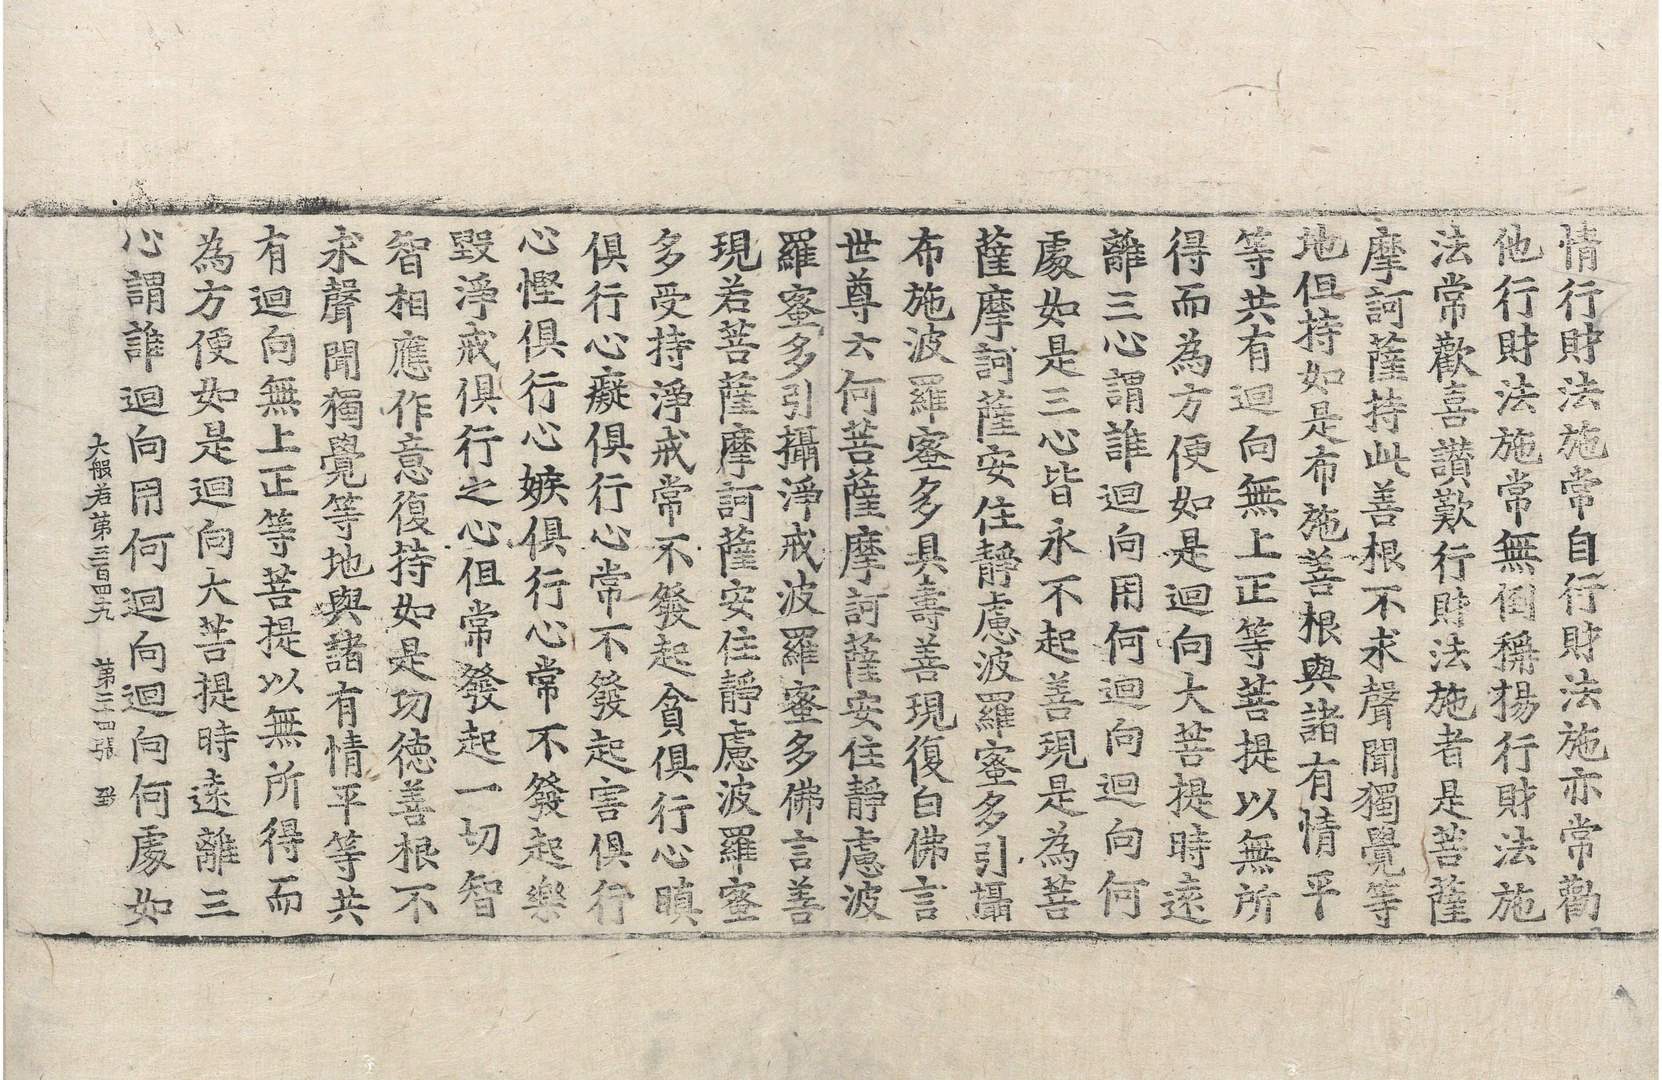 情行財法施常自行財法施亦常勸
他行財法施常無倒稱揚行財法施
法常歡喜讃歎行財法施者是菩薩
摩訶薩持此善根不求聲聞獨覺等
地但持如是布施善根與諸有情平
等共有迴向無上正等菩提以無所
得而為方便如是迴向大菩提時遠
離三心謂誰迴向用何迴向迴向何
處如是三心皆永不起善現是為菩
薩摩訶薩安住靜慮波羅蜜多引攝
布施波羅蜜多具壽善現復白佛言
世尊云何菩薩摩訶薩安住靜慮波
羅蜜多引攝淨戒波羅蜜多佛言善
現若菩薩摩訶薩安住靜慮波羅蜜
多受持淨戒常不發起貪俱行心瞋
俱行心癡俱行心常不發起害俱行
心慳俱行心嫉俱行心常不發起樂
毀淨戒俱行之心但常發起一切智
智相應作意復持如是功德善根不
求聲聞獨覺等地與諸有情平等共
有迴向無上正等菩提以無所得而
為方便如是迴向大菩提時遠離三
心謂誰迴向用何迴向迴向何處如
大般若第三百四九 第三四張